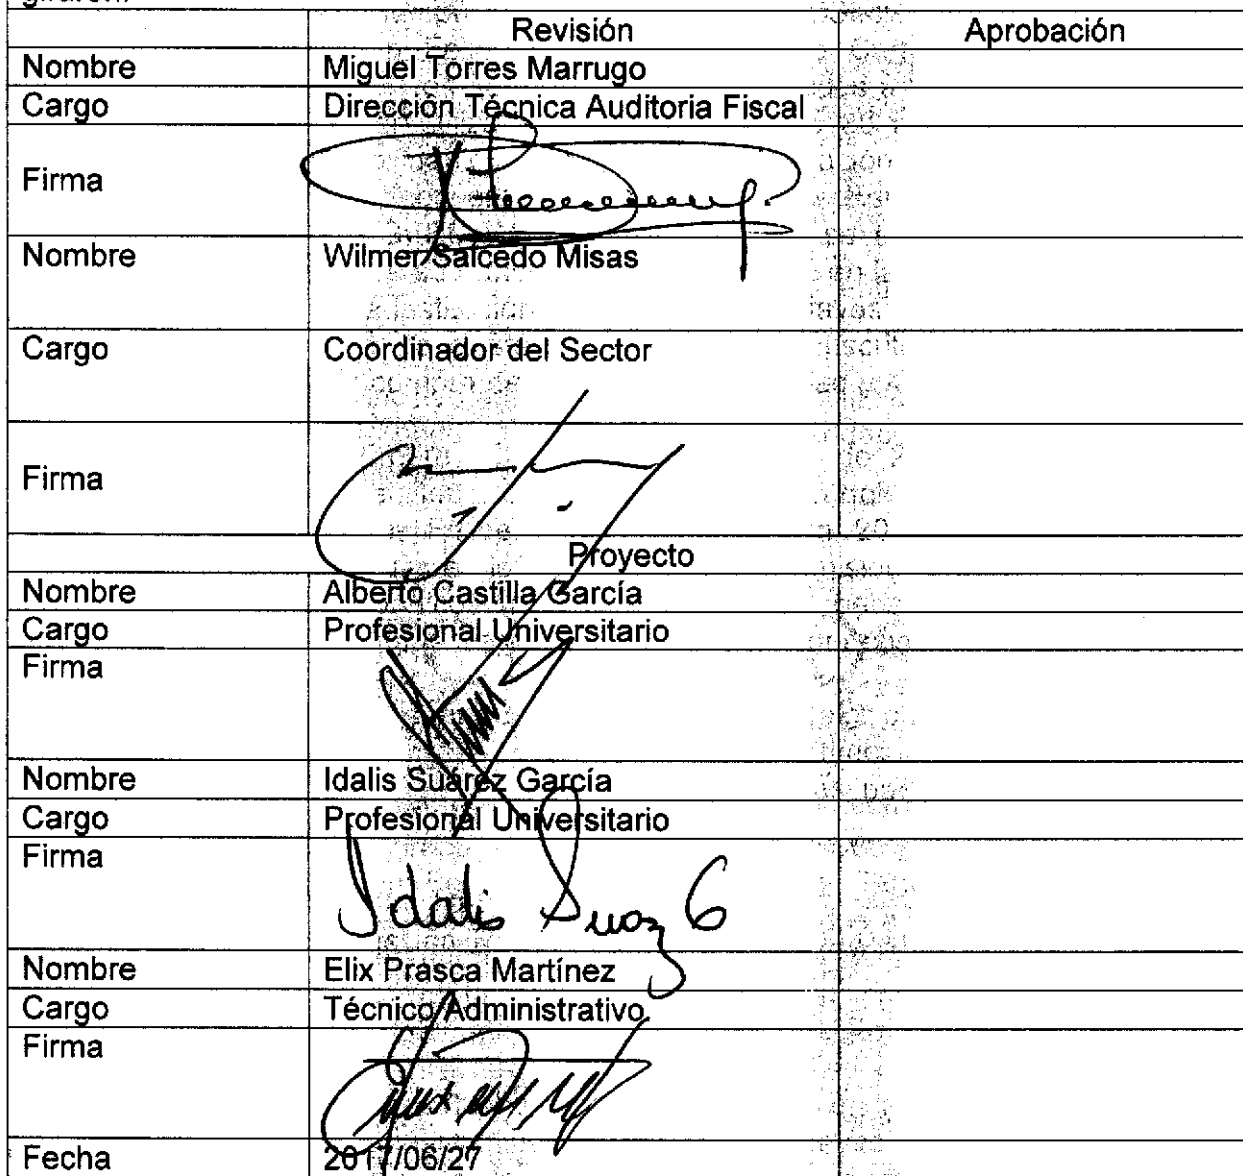 Revisión Aprobación
Nombre Miguel Torres Marrugo
Cargo Dirección Técnica Auditoria Fiscal
Firma
Nombre Wilmer Salcedo Misas
Cargo Coordinador del Sector
Firma
Proyecto
Nombre Alberto Castilla García
Cargo Profesional Universitario
Firma
Nombre Idalis Suárez García
Cargo Profesional Universitario
Firma Idalis Suaz G
Nombre Elix Prasca Martínez
Cargo Técnico Administrativo
Firma
Fecha 2017/06/27